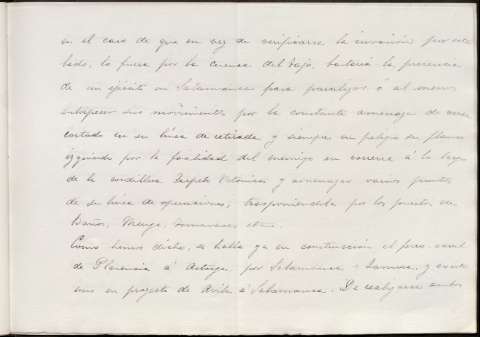 en el caso de que en vez de verificarse la invasión por este
lado, lo fuera por la cuenca del Tajo, bastaría la presencia
de un ejército en Salamanca para paralizar ó al menos
entorpecer sus movimientos por la constante amenaza de verse
cortado en su línea de retirada y siempre en peligro su flanco
izquierdo por la facilidad del enemigo en correrse á lo largo
de la cordillera Carpeto Vetónica y amenazar varios puntos
de su línea de operaciones, trasponiéndola por los puertos de
Baños, etc.
Como hemos dicho, se halla ya en construcción el ferro-carril
de Plasencia á Astorga, por Salamanca y Zamora, y existe
uno en proyecto de Avila á Salamanca. De realizarse ambos